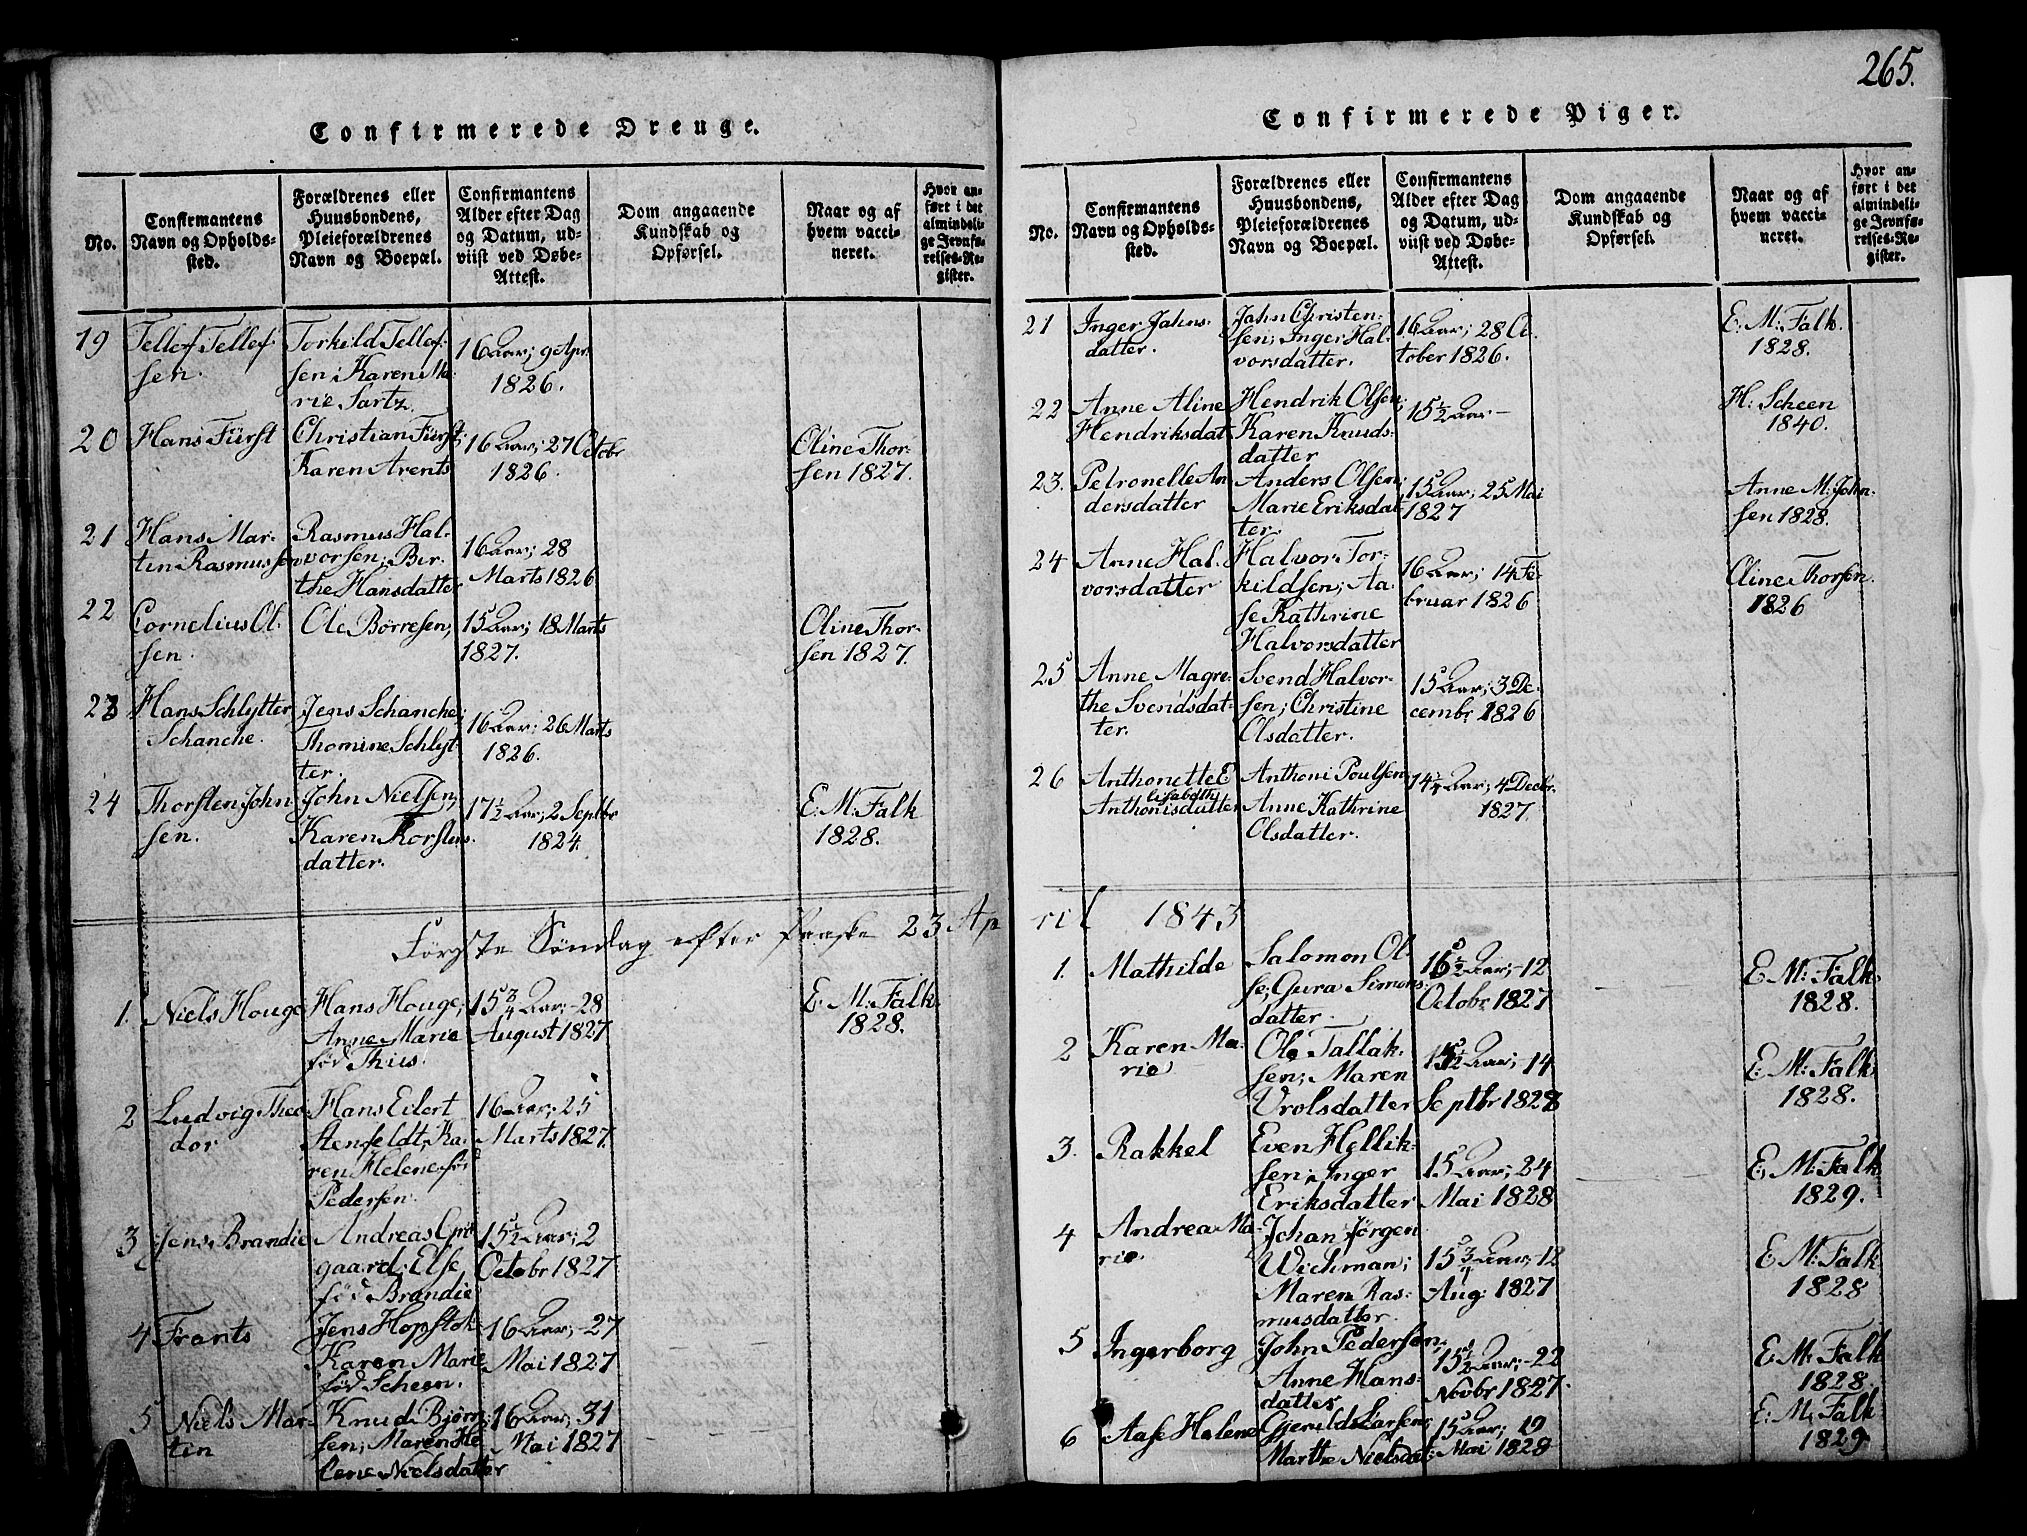 265.
Confirmerede Drenge.
No.
Confirmantens
Navn og Opholds-
sted.
Forældrenes eller
Huusbondens,
Pleieforældrenes
Navn og Boepæl.
Confirmantens
Alder efter Dag
og Datum, ud-
viist ved Døbe-
Attest.
Dom angaaende
Kundskab og
Opførsel.
Naar og af
hvem vacci-
neret.
Hvor an-
ført i det
almindeli-
ge Jevnfø-
relses-Re-
gister.
19
Tellef Tellef-
sen.
Torkild Tellef-
sen; Karen Ma-
rie Sartz.
16 Aar; 9 Apr.
1826.
20
Hans Fürst
Christian Fürst;
Karen Arents
16 Aar; 27 Octobr
1826.
Oline Thor-
sen 1827.
21
Hans Mar-
tin Rasmussen
Rasmus Hal-
vorsen; Bir-
the Hansdatter
16 Aar; 28
Marts 1826
22
Cornelius Ol-
sen.
Ole Børresen;
15 Aar; 18 Marts
1827.
Oline Thor-
sen 1827.
23
Hans Schlytter
Schanche.
Jens Schanche;
Thomine Schlyt-
ter.
16 Aar; 26 Marts
1826.
24
Thorsten John
sen.
John Nielsen;
Karen Thorstens-
datter.
17½ Aar; 2 Septbr
1824.
E. M. Falk
1828.
Første Søndag efter Paaske 23 Ap
1.
Niels Houge
Hans Houge;
Anne Marie
fød Thiis.
15¾ Aar; -28
August 1827
E. M: Falk
1828.
2
Ludvig Theo
dor
Hans Eilert
Stenfeldt; Ka-
ren Helene fød
Pedersen.
16 Aar; 25
Marts 1827.
3
Jens Brandie
gaard; Else
fød Brandie
15½ Aar; 2
Octobr 1827
4
Frants
Jens Hopstok
Karen Marie
fød Scheen.
16 Aar; -27
Mai 1827
5
Niels Mar-
tin
Knud Bjørn-
sen; Maren He
lene Nielsdatter
16 Aar; 31
Mai 1827
Confirmerede Piger.
No.
Confirmantens
Navn og Opholds-
sted.
Forældrenes eller
Huusbondens,
Pleieforældrenes
Navn og Boepæl.
Confirmantens
Alder efter Dag
og Datum, ud-
viist ved Døbe-
Attest.
Dom angaaende
Kundskab og
Opførsel.
Naar og af
hvem vacci-
neret.
Hvor an-
ført i det
almindeli-
ge Jevnfø-
relses-Re-
gister.
21
Inger Jahns-
datter.
Jahn Christen-
sen; Inger Hal-
vorsdatter.
16 Aar; 28 Oc
tober 1826.
E: M: Falk.
1828.
22
Anne Aline
Hendriksdat
Hendrik Olsen;
Karen Knuds-
datter
15½ Aar -
H: Scheen
1840.
23.
Petronelle An
dersdatter
Anders Olsen;
Marie Eriksdat
ter.
15 Aar; 25 Mai
1827
Anne M: John-
sen 1828.
24
Anne Hal-
vorsdatter
Halvor Tor-
kildsen; Aa-
se Kathrine
Halvorsdatter
16 Aar; 14 Fe-
bruar 1826
Oline Thorsen.
1826
25
Anne Magre-
the Svendsdat-
ter.
Svend Halvor-
sen; Christine
Olsdatter.
15 Aar; 3 De-
cembr 1826
26
Anthonette E
lisabeth
Anthonisdatter
Anthoni Poulsen
Anne Kathrine
Olsdatter.
14¼ Aar; 4 Decbr.
1827.
ril 1843
1.
Mathilde
Salomon Ol
se; Gura Simons-
datter.
15½ Aar; -12
Octobr 1827
E. M: Falk
1828.
2
Karen Ma-
rie
Ole Tallak-
sen; Maren
Vrolsdatter
15½ Aar; -14
Septbr 1828
E: M: Falk
1828.
3.
Rakkel
Even Hellik-
sen; Inger
Eriksdatter
15 Aar; 24
Mai 1828
E: M: Falk
1829.
4
Andrea Ma-
rie.
Johan Jørgen
Wichman;
Maren Ras-
musdatter.
15¾ Aar; -12
Aug: 1827
E. M: Falk
1828
5
Ingerborg
John Pedersen;
Anne Hans-
datter
15½ Aar; -22
Novbr 1827.
E. M: Falk
1828.
6
Aase Helene
Gjeruld Larsen;
Marthe Nielsdat:
15 Aar; 19
Mai 1828
E: M: Falk
1829